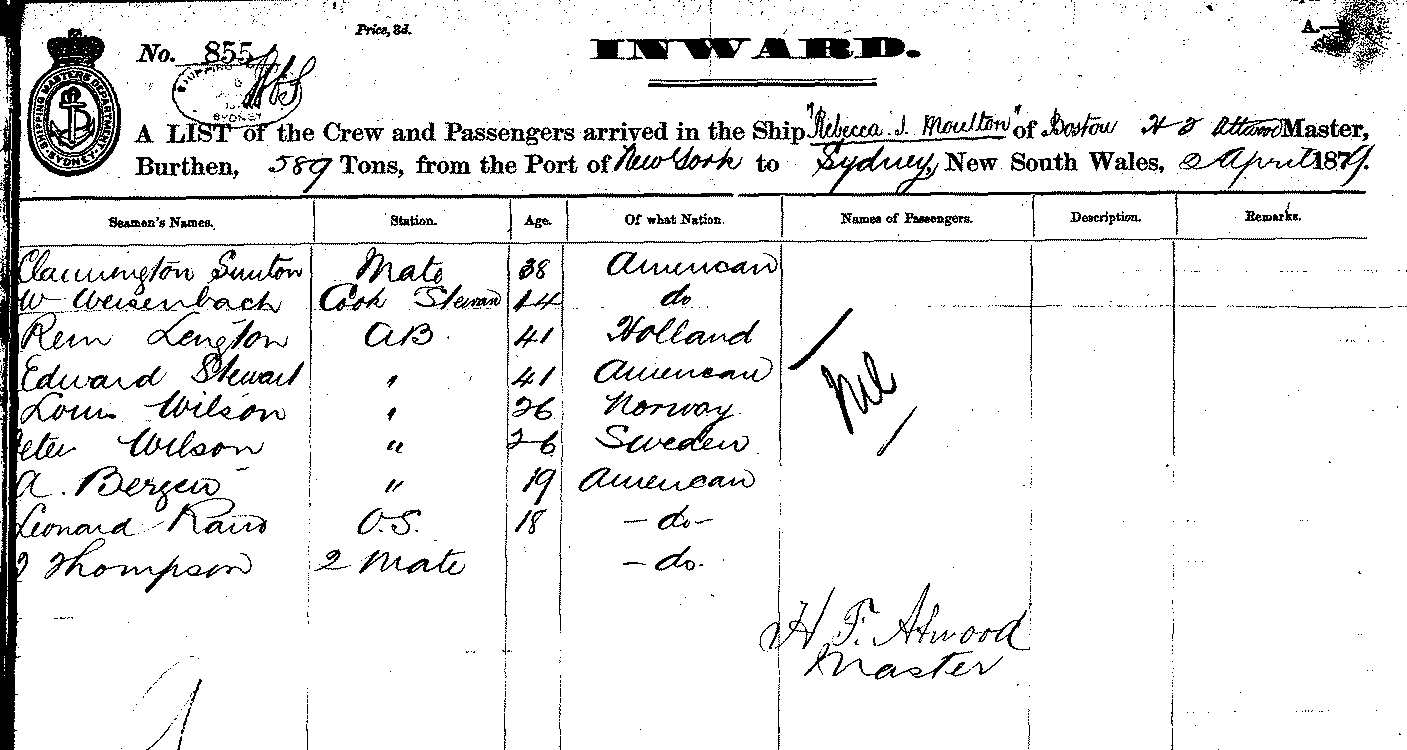 Price, 3d.
A.—
No. 855
INWARD.
SHIPPING MASTERS DEPARTMENT SYDNEY
SYDNEY
A LIST of the Crew and Passengers arrived in the Ship "Rebecca J. Moulton" of Boston H F Attwood Master,
Burthen, 589 Tons, from the Port of New York to Sydney, New South Wales, 2 April 1879.
Seamen's Names. Station. Age. Of what Nation. Names of Passengers. Description. Remarks.
Mate 38 American
W Weisenbach Cook Steward 14 do
Rein Lengton AB. 41 Holland
Edward Stewart " 41 American
Louis Wilson " 26 Norway
Nil
eter Wilson " 26 Sweden
A. Bergen " 19 American
Leonard Rand O.S. 18 - do -
Thompson 2 Mate - do.
H. F. Atwood
Master